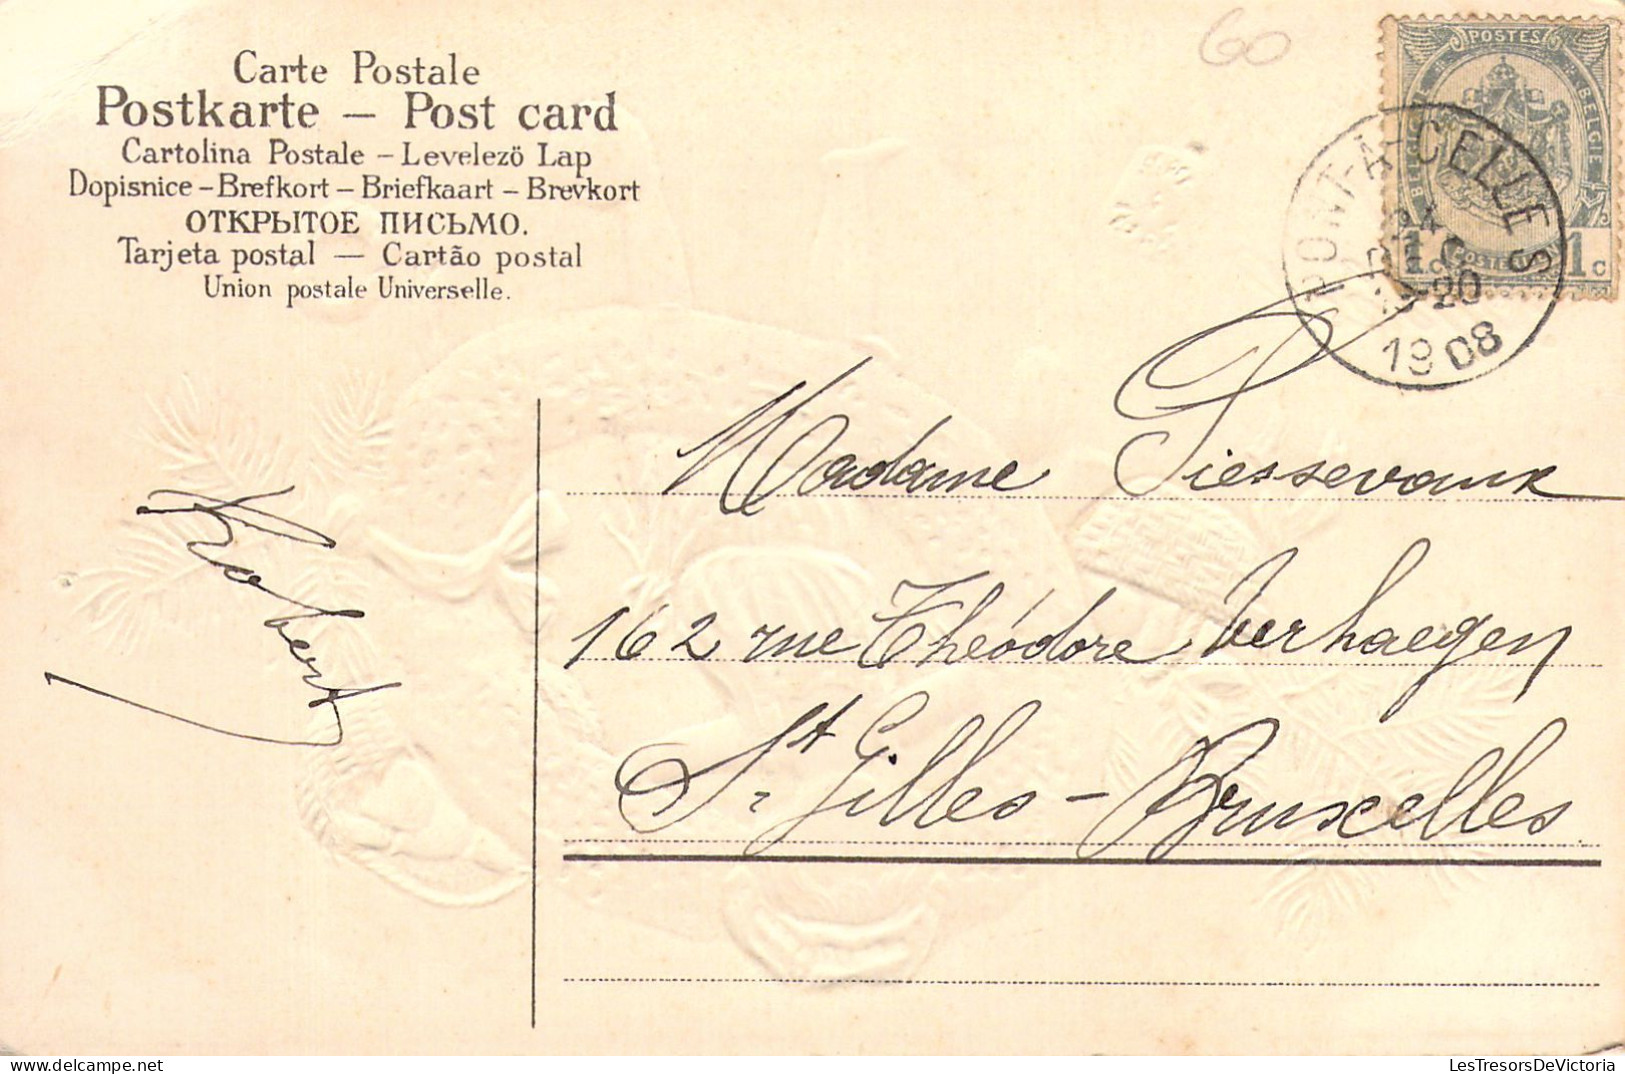 60
Carte Postale
Postkarte – Post card
Cartolina Postale – Levelezö Lap
Dopisnice – Brefkort – Briefkaart – Brevkort
ОТКРЫТОЕ ПИСЬМО.
Tarjeta postal — Cartão postal
Union postale Universelle.
POSTES
BELGIQUE BELGIE
1c POSTERIJEN 1c
PONT-A-CELLES
20
1908
Madame Piessevaux
162 rue Théodore Verhaegen
St Gilles - Bruxelles
Robert
LesTresorsDeVictoria